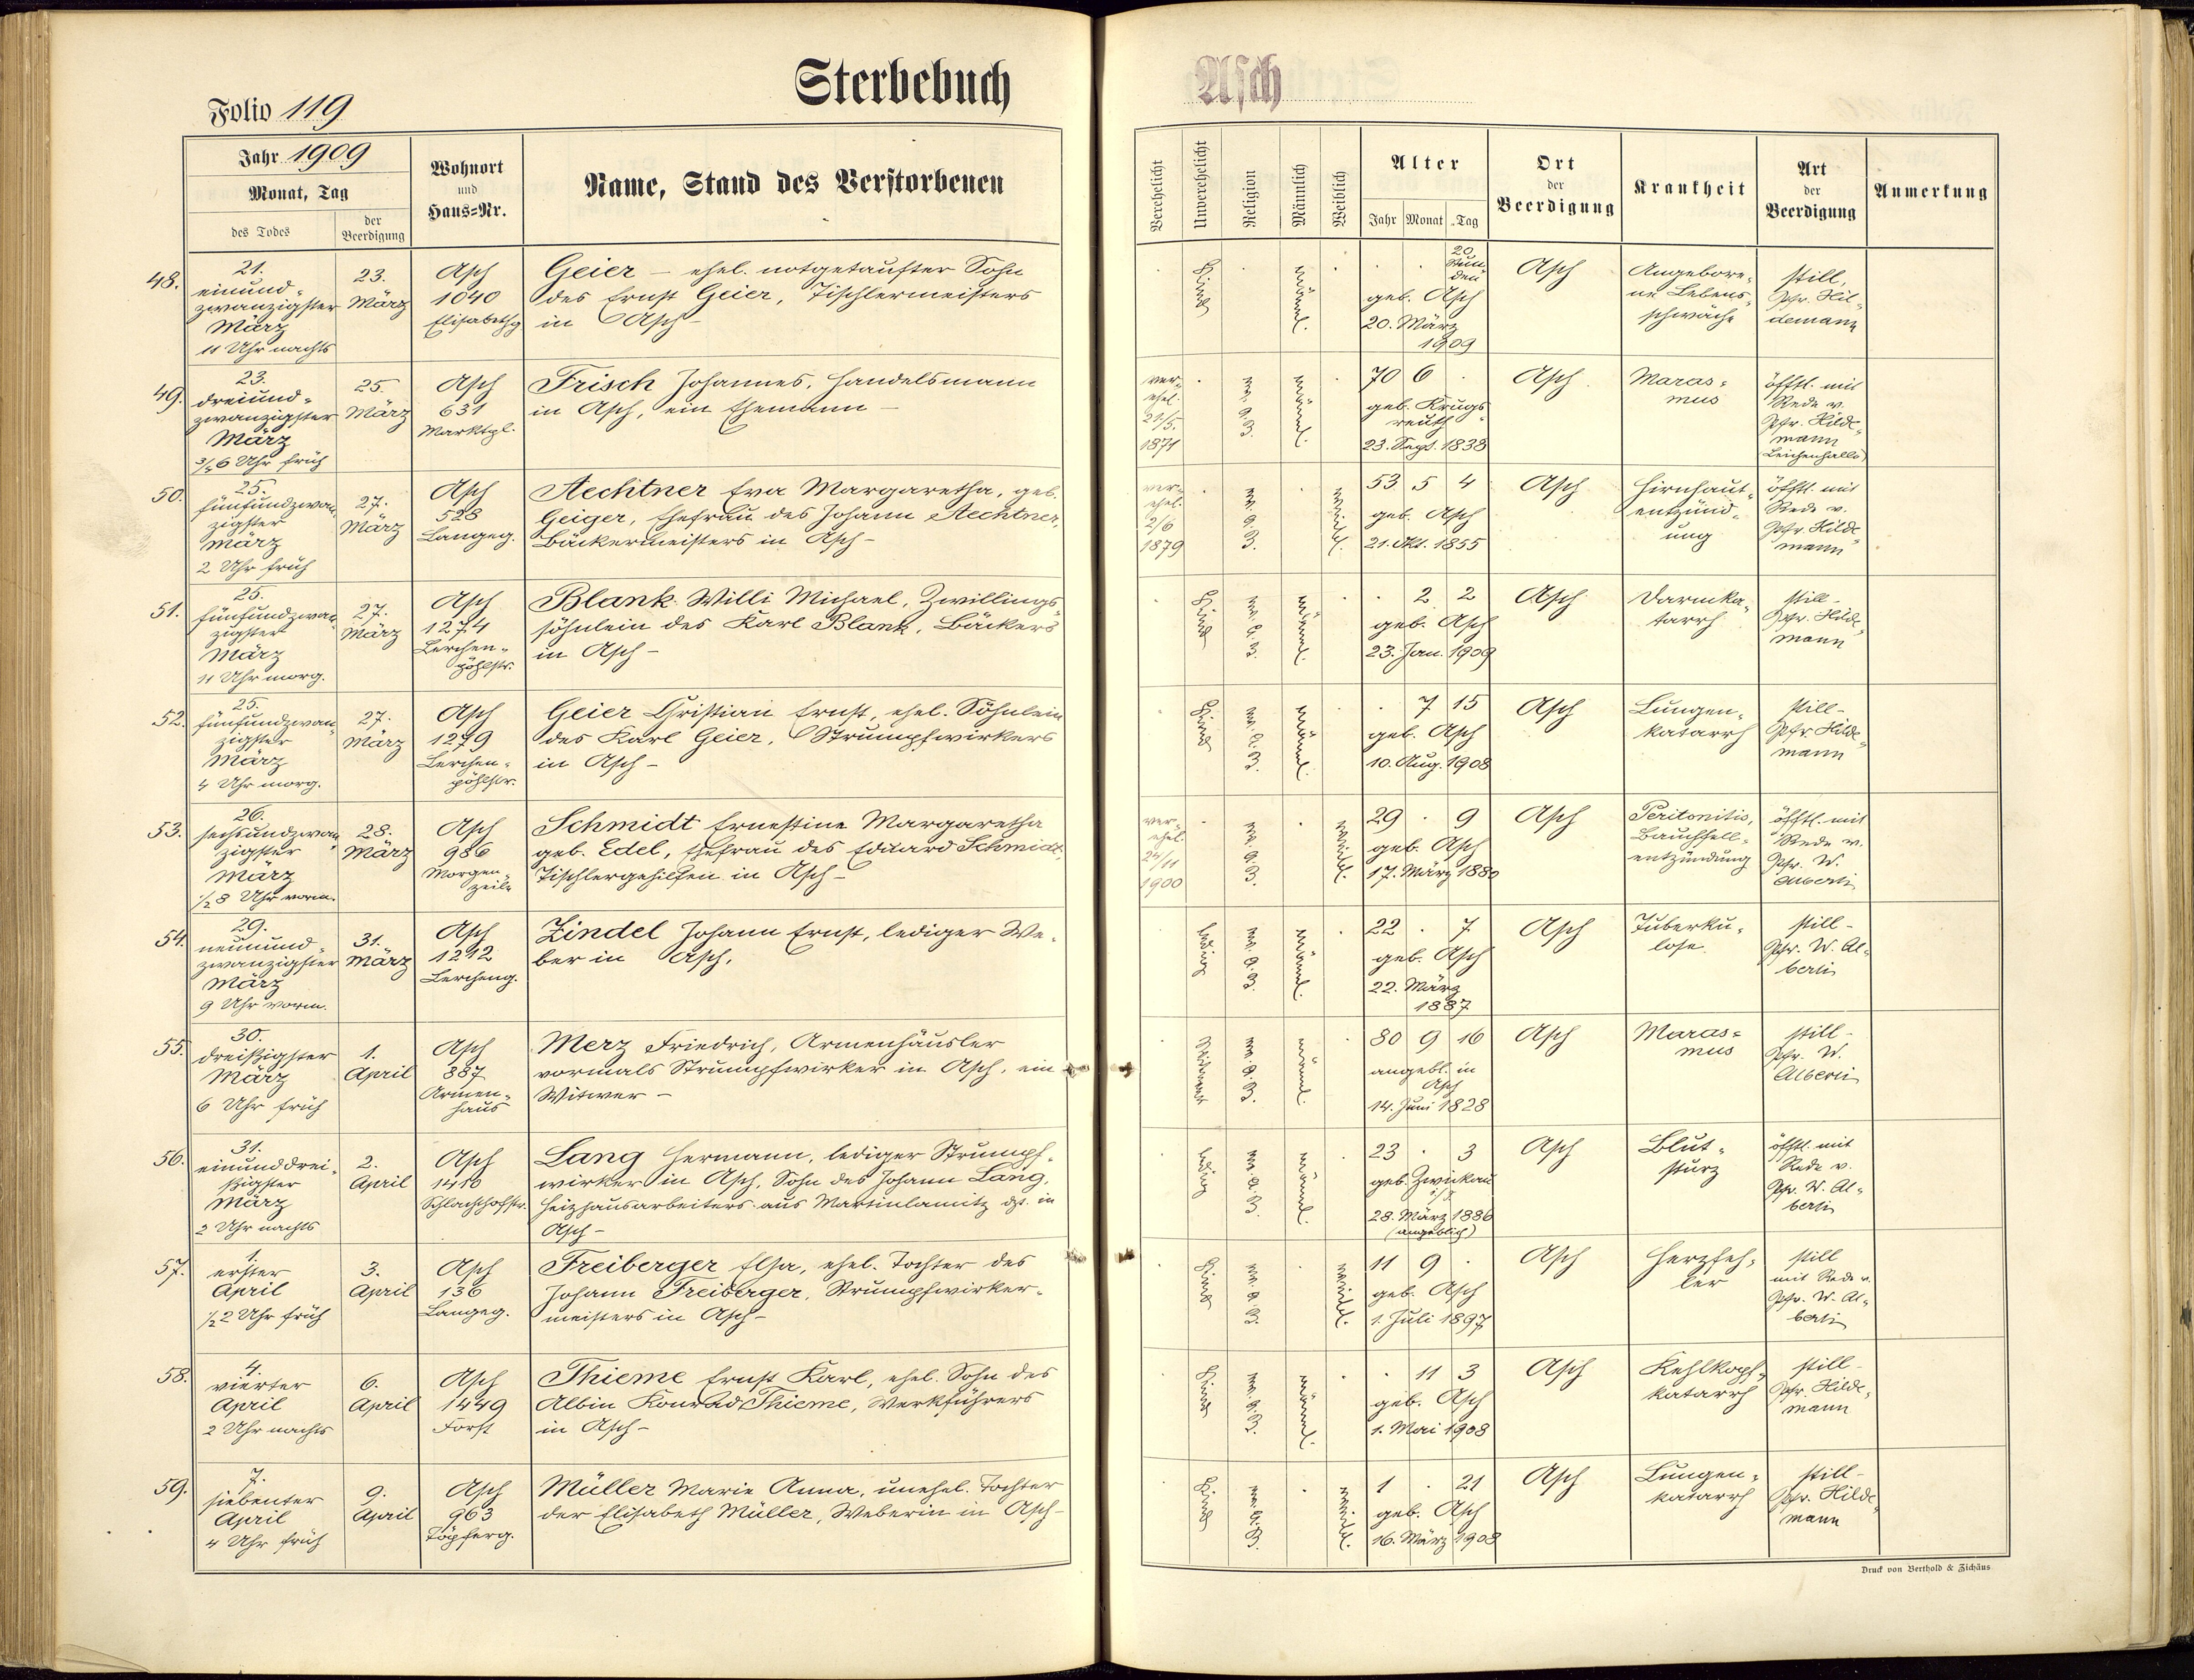 Sterbebuch
Asch
Folio 119
Jahr 1909
Monat, Tag
des Todes
der Beerdigung
Wohnort
und
Haus=Nr.
Name, Stand des Verstorbenen
Verehelicht
Unverehelicht
Religion
Männlich
Weiblich
Alter
Jahr Monat Tag
Ort
der
Beerdigung
Krankheit
Art
der
Beerdigung
Anmerkung
48.
21.
einund-
zwanzigster
März
11 Uhr nachts
23.
März
Asch
1040
Elisabethg
Geier – ehel. notgetaufter Sohn
des Ernst Geier, Tischlermeisters
in Asch –
Kind
männl.
20
Stun
den
geb. Asch
20. März
1909
Asch
Angebore-
ne Lebens-
schwäche
still,
Pfr. Hil-
demann
49.
23.
dreiund-
zwanzigster
März
3/4 6 Uhr früh
25.
März
Asch
631
Marktpl.
Frisch Johannes, Handelsmann
in Asch, ein Ehemann –
ver-
ehel.
21/5.
1871
männl.
70 6
geb. Krugs-
reuth
23. Sept. 1838
Asch
Maras-
mus
öfftl. mit
Rede v.
Pfr. Hilde-
mann
Leichenhalle
50.
25.
fünfundzwan-
zigster
März
2 Uhr früh
27.
März
Asch
528
Langeg.
Aechtner Eva Margaretha, geb.
Geiger, Ehefrau des Johann Aechtner,
Bäckermeisters in Asch –
ver-
ehel.
2/6
1879
weibl.
53 5 4
geb. Asch
21. Okt. 1855
Asch
Hirnhaut-
entzünd-
ung
öfftl. mit
Rede v.
Pfr. Hilde-
mann
51.
25.
fünfundzwan-
zigster
März
11 Uhr morg.
27.
März
Asch
1274
Lerchen-
pöhlstr.
Blank Willi Michael, Zwillings-
söhnlein des Karl Blank, Bäckers
in Asch –
Kind
männl.
2 2
geb. Asch
23. Jan. 1909
Asch
Darmka-
tarrh
still –
Pfr. Hilde-
mann
52.
25.
fünfundzwan-
zigster
März
4 Uhr morg.
27.
März
Asch
1279
Lerchen-
pöhlstr.
Geier Christian Ernst, ehel. Söhnlein
des Karl Geier, Strumpfwirkers
in Asch –
Kind
männl.
7 15
geb. Asch
10. Aug. 1908
Asch
Lungen-
katarrh
still –
Pfr. Hilde-
mann
53.
26.
sechsundzwan-
zigster
März
1/2 8 Uhr vorm.
28.
März
Asch
986
Morgen-
zeile
Schmidt Ernestine Margaretha
geb. Edel, Ehefrau des Eduard Schmidt,
Tischlergehilfen in Asch –
ver-
ehel.
24/11
1900
weibl.
29 9
geb. Asch
17. März 1880
Asch
Peritonitis,
Bauchfell-
entzündung
öfftl. mit
Rede v.
Pfr. W.
Alberti
54.
29.
neunund-
zwanzigster
März
9 Uhr vorm.
31.
März
Asch
1212
Lercheng.
Zindel Johann Ernst, lediger We-
ber in Asch.
ledig
männl.
22 7
geb. Asch
22. März
1887
Asch
Tuberku-
lose
still –
Pfr. W. Al-
berti
55.
30.
dreißigster
März
6 Uhr früh
1.
April
Asch
887
Armen-
haus
Merz Friedrich, Armenhäusler
vormals Strumpfwirker in Asch, ein
Witwer –
Witwer
männl.
80 9 16
angebl. in
Asch
14. Juni 1828
Asch
Maras-
mus
still –
Pfr. W.
Alberti
56.
31.
einunddrei-
ßigster
März
2 Uhr nachts
2.
April
Asch
1410
Schlachthofstr.
Lang Hermann, lediger Strumpf-
wirker in Asch, Sohn des Johann Lang,
Heizhausarbeiters aus Martinlamitz dzt. in
Asch –
ledig
männl.
23 3
geb. Zwickau
28. März 1886
(angeblich)
Asch
Blut-
sturz
öfftl. mit
Rede v.
Pfr. W. Al-
berti
57.
1.
erster
April
1/2 2 Uhr früh
3.
April
Asch
136
Langeg.
Freiberger Elsa, ehel. Tochter des
Johann Freiberger, Strumpfwirker-
meisters in Asch –
Kind
weibl.
11 9
geb. Asch
1. Juli 1897
Asch
Herzfeh-
ler
still
mit Rede v.
Pfr. W. Al-
berti
58.
4.
vierter
April
2 Uhr nachts
6.
April
Asch
1449
Forst
Thieme Ernst Karl, ehel. Sohn des
Albin Konrad Thieme, Werkführers
in Asch –
Kind
männl.
11 3
geb. Asch
1. Mai 1908
Asch
Kehlkopf-
katarrh
still –
Pfr. Hilde-
mann
59.
7.
siebenter
April
4 Uhr früh
9.
April
Asch
963
Töpferg.
Müller Marie Anna, unehel. Tochter
der Elisabeth Müller, Weberin in Asch –
Kind
weibl.
1 21
geb. Asch
16. März 1908
Asch
Lungen-
katarrh
still –
Pfr. Hilde-
mann
Druck von Berthold & Zichäus